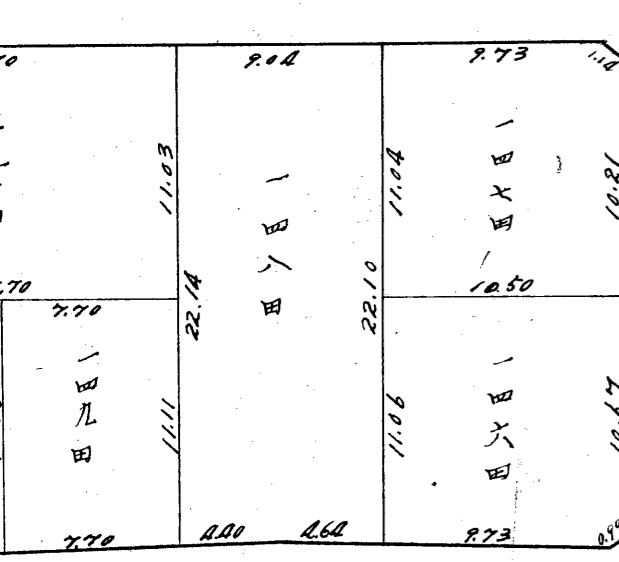 9.04
9.73
1.14
11.03
一四八田
11.04
一四七田
10.21
22.14
22.10
7.70
10.50
一四九田
11.11
11.06
一四六田
7.70
4.40
4.64
9.73